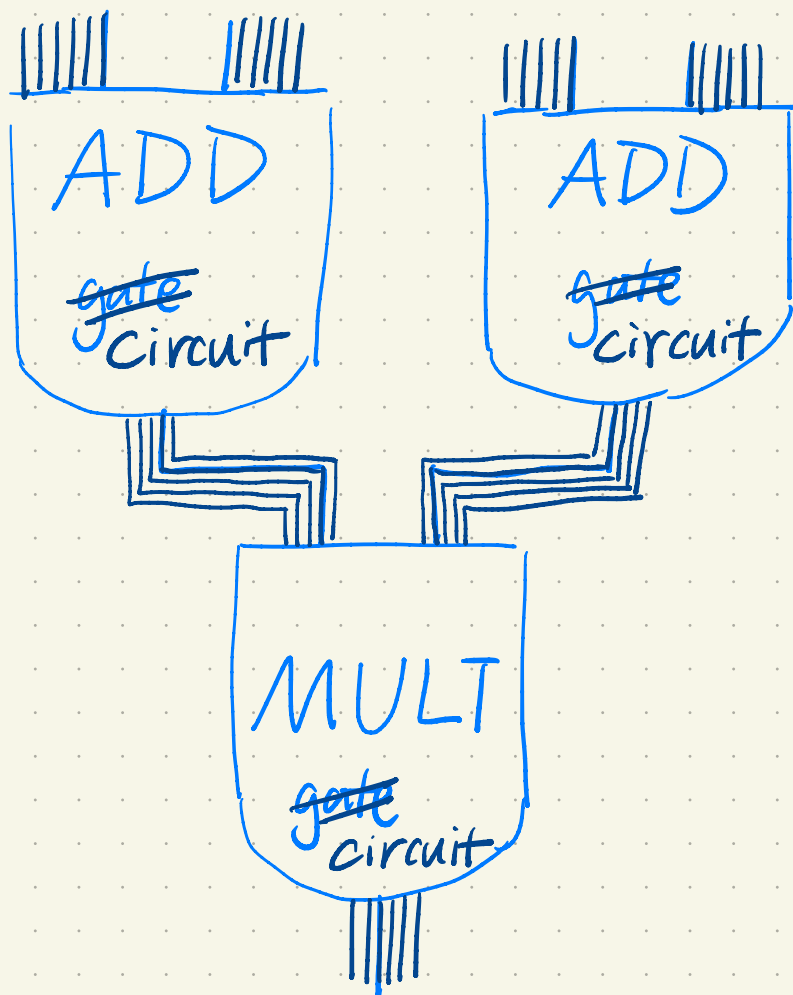 ADD
gate
circuit
ADD
gate
circuit
MULT
gate
circuit